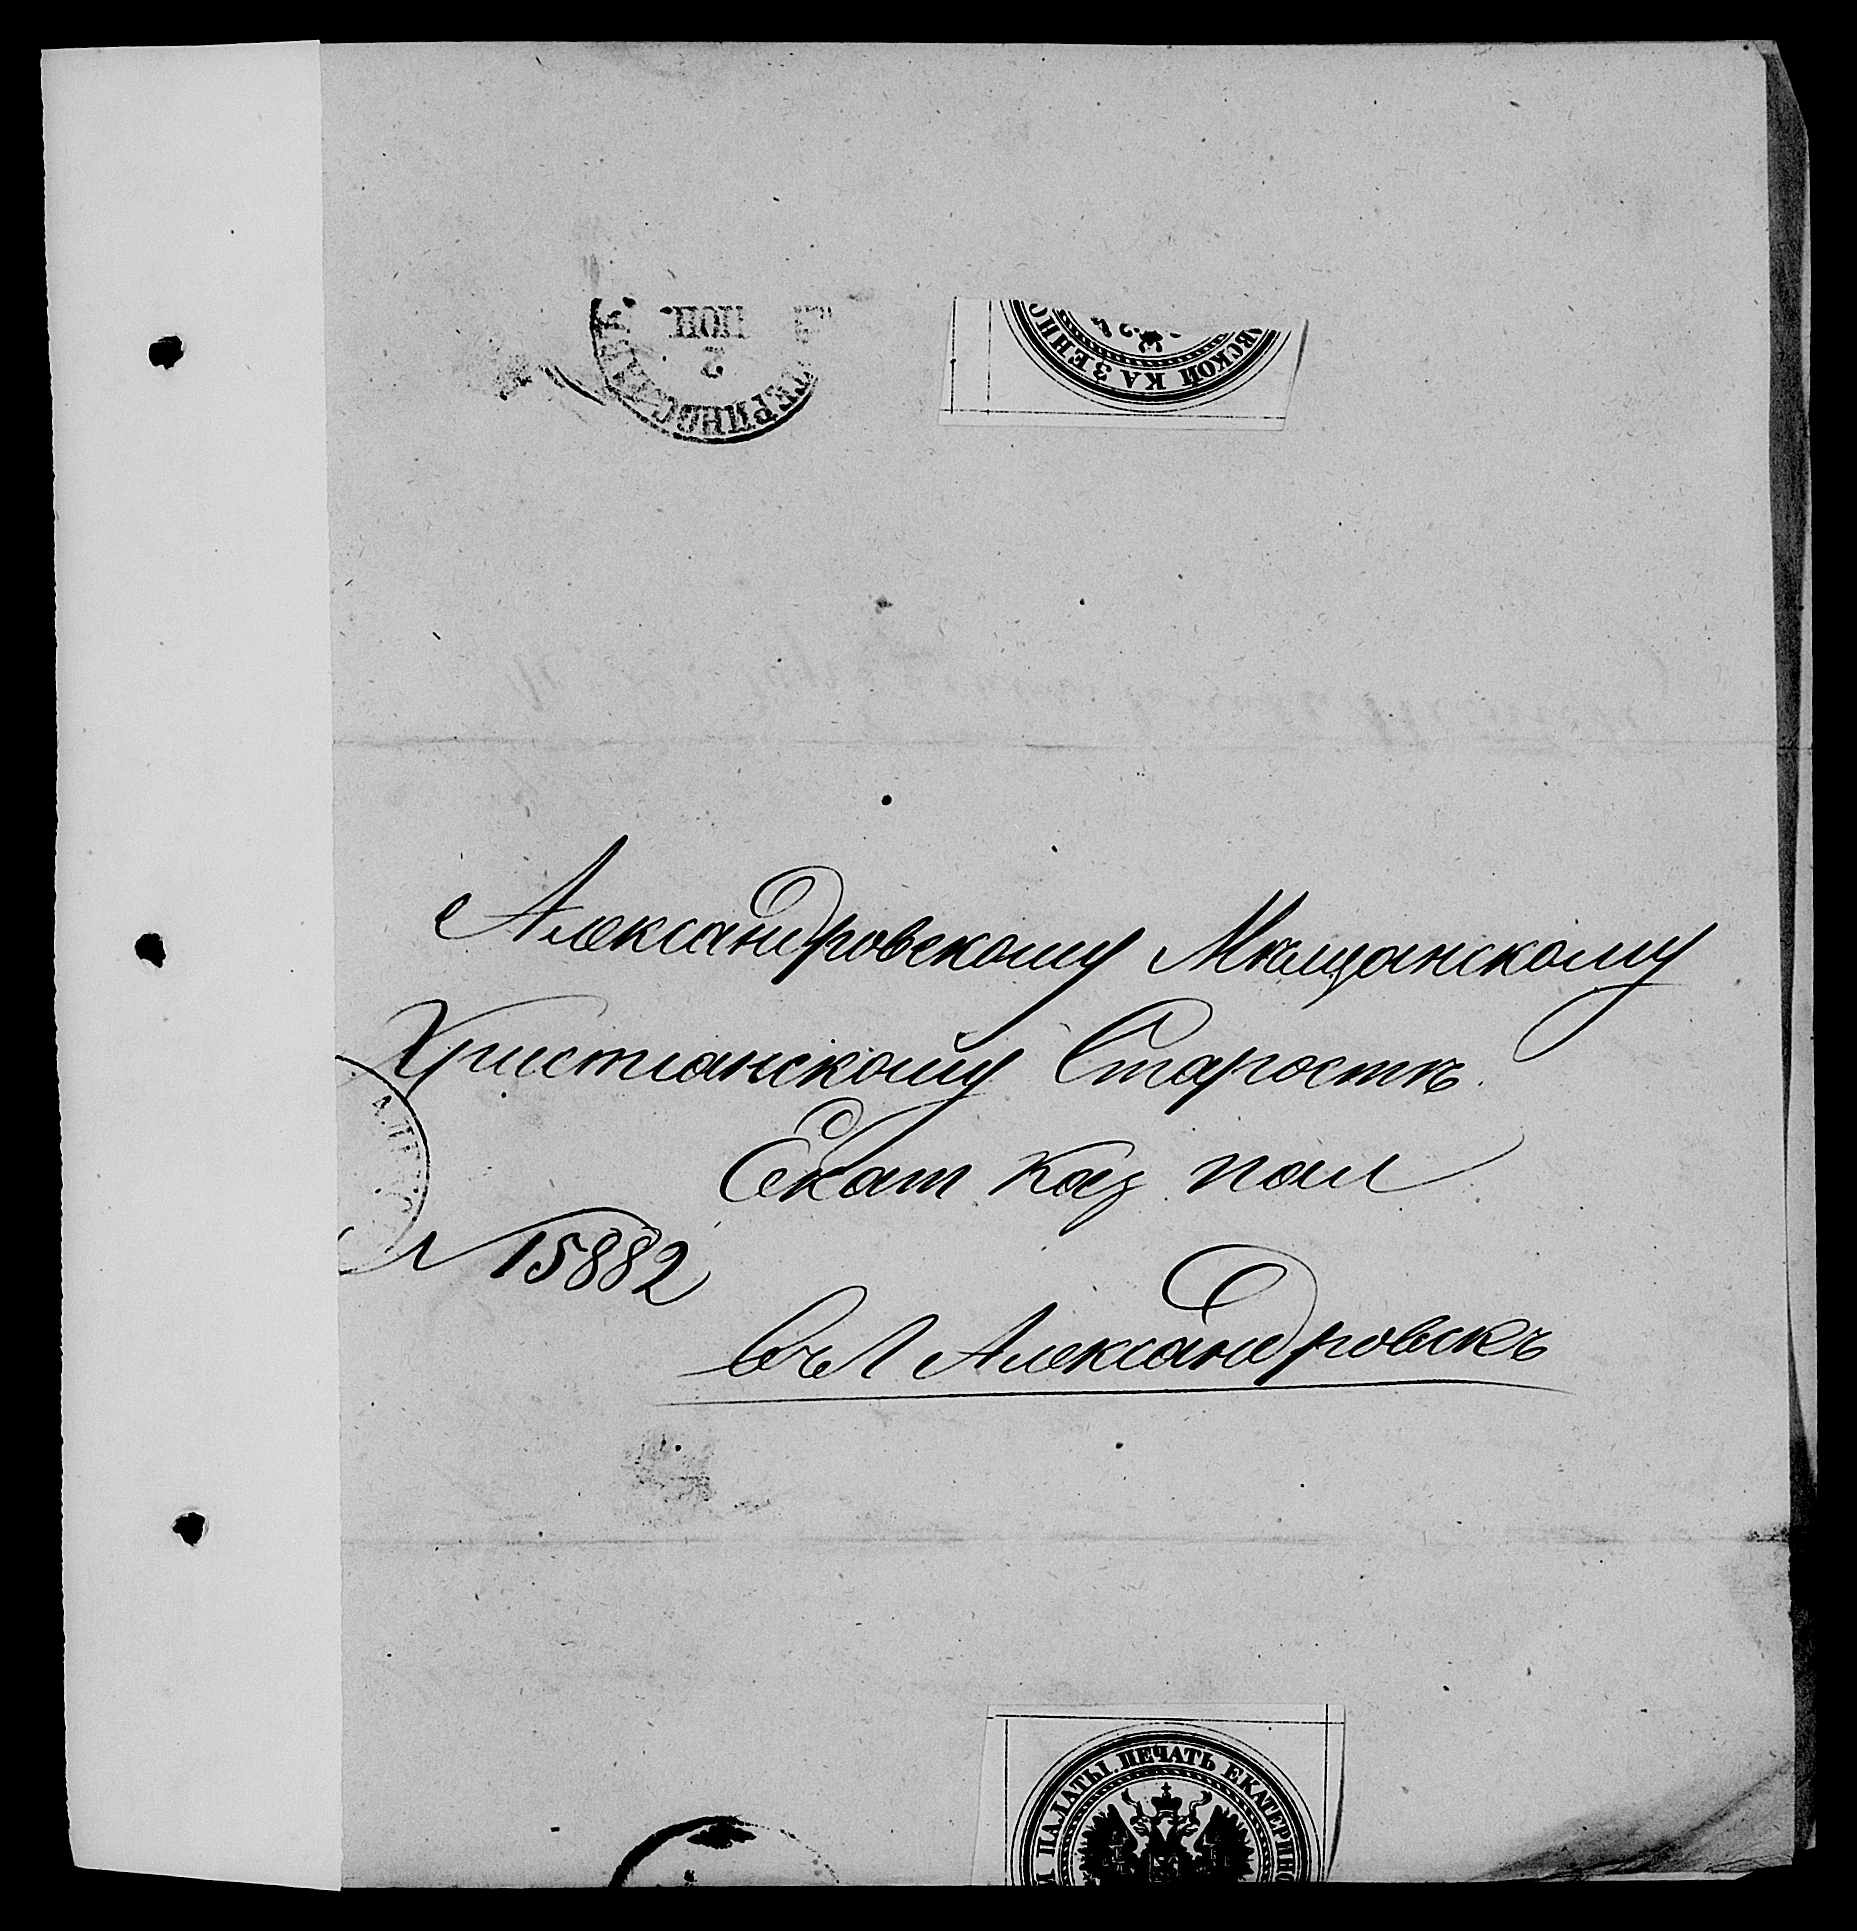 ТЕРИНОСЛАВ
2
ІЮН.
ВСКОЙ КАЗЕННО
Александровскому Мѣщанскому
Христіанскому Старостѣ.
Екат. Каз. пал
№ 15882
въ г Александровскъ
И ПАЛАТЫ. ПЕЧАТЬ ЕКАТЕРИНО